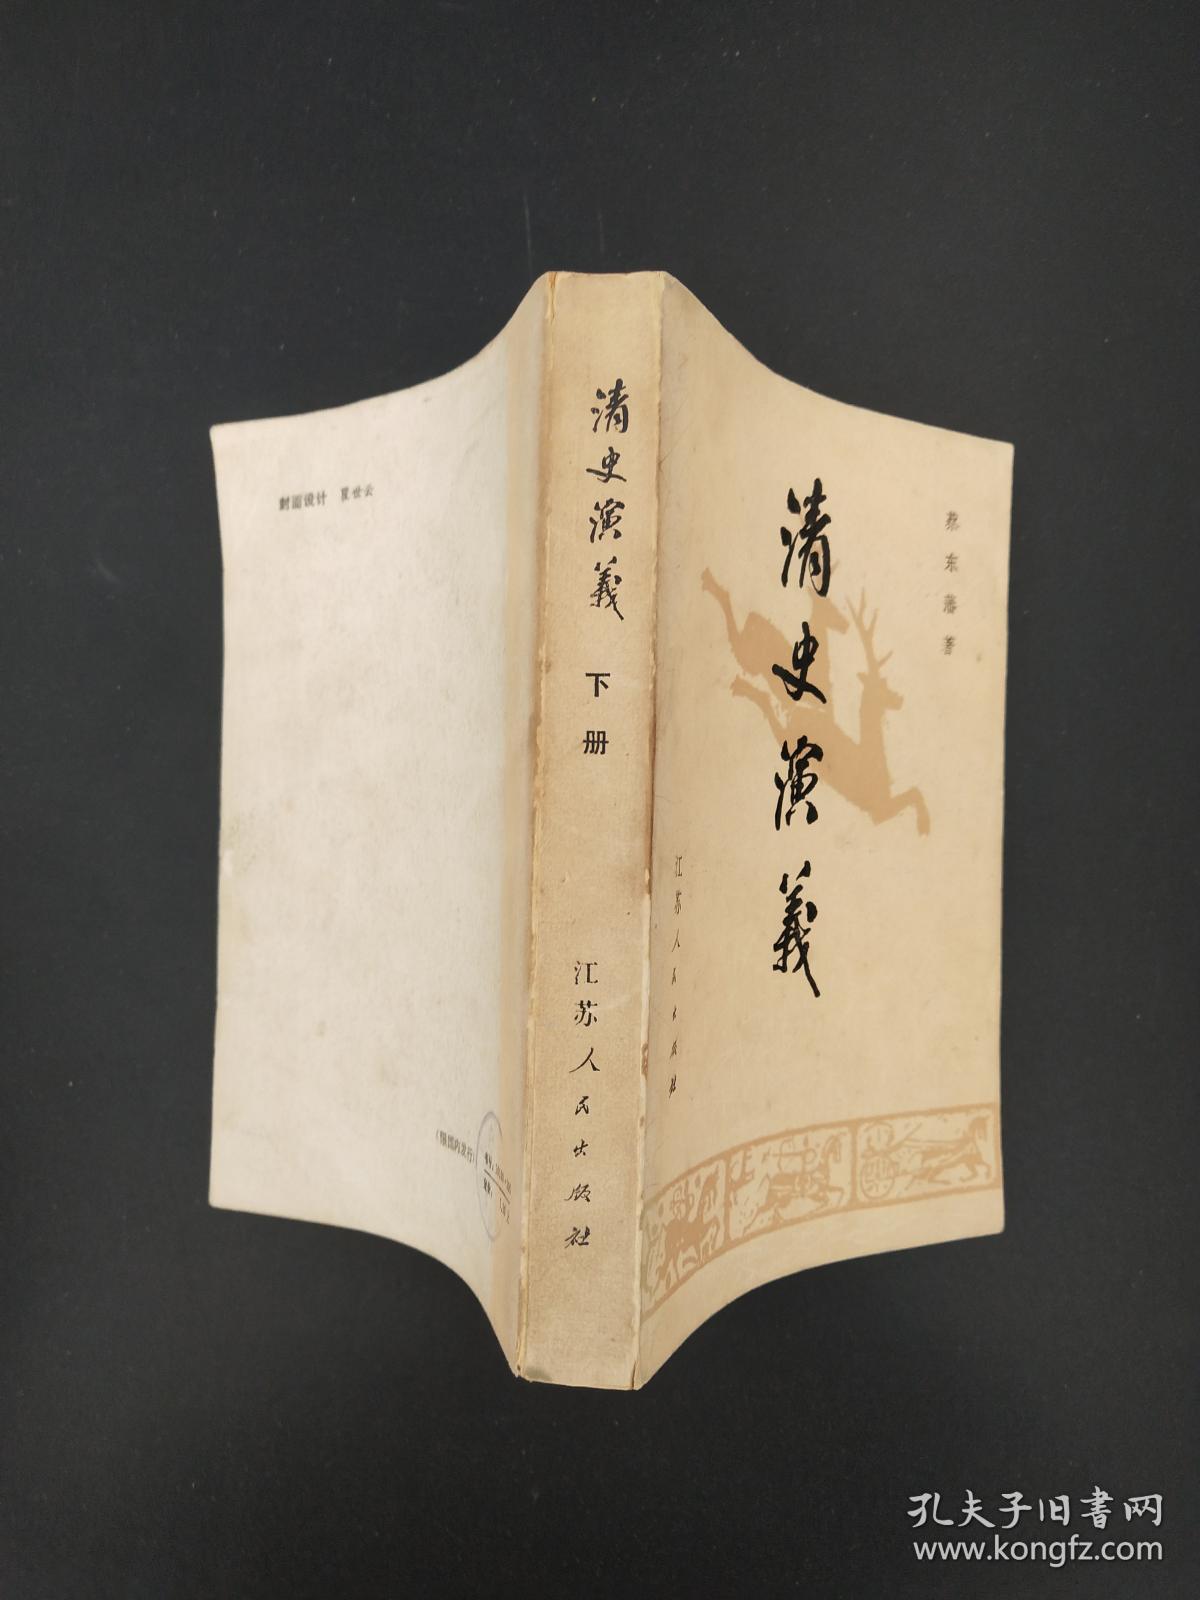 清史演義
蔡东藩著
江苏人民出版社
清史演義
下册
江苏人民出版社
封面设计 瞿世云
（限国内发行）
孔夫子旧书网
www.kongfz.com